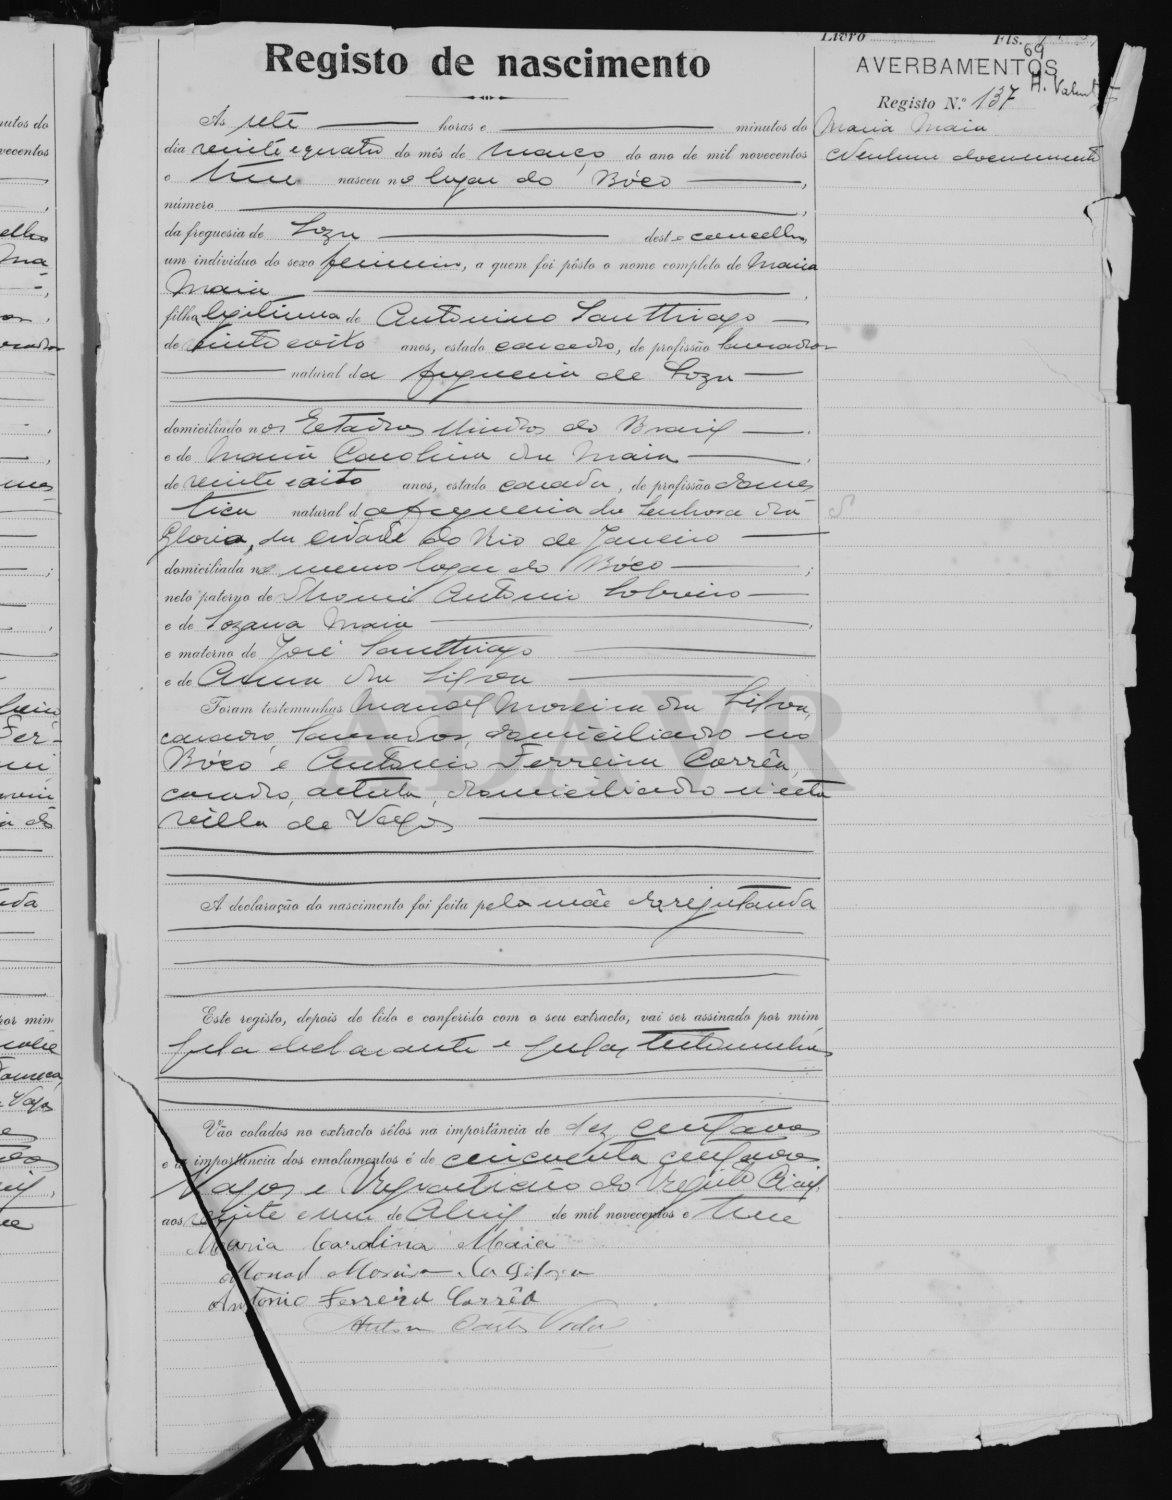 Livro Fls.
69
Registo de nascimento
AVERBAMENTOS
Registo N.º 137
Maria Maia
Nenhum documento
Às sete horas e minutos do
dia vinte e quatro do mês de março, do ano de mil novecentos
e treze nasceu no logar do Bóco,
número
da freguesia de Soza deste concelho,
um individuo do sexo feminino, a quem foi pôsto o nome completo de Maria
Maia
filha legitima de Antonino Santhiago
de vinte e oito anos, estado casado, de profissão lavrador
natural da freguesia de Soza
domiciliado nos Estados Unidos do Brasil
e de Maria Carolina da Maia
de vinte e oito anos, estado casada, de profissão domes
tica natural da freguesia da Senhora da
Gloria, da cidade do Rio de Janeiro
domiciliada no mesmo logar do Bóco;
neto paterno de Antonio Sobreiro
e de Sozana Maia
e materno de José Santhiago
e de Anna da Silva
Foram testemunhas Manoel Moreira da Silva,
casado, lavrador, domiciliado no
Bóco e Antonio Ferreira Corrêa,
casado, domiciliado n'esta
villa de Vagos
A declaração do nascimento foi feita pela mãe da registanda
Este registo, depois de lido e conferido com o seu extracto, vai ser assinado por mim
pela declarante e pelas testemunhas
Vão colados no extracto sêlos na importância de dez centavos
e a importância dos emolumentos é de cincoenta centavos
Vagos e Repartição do Registo Civil,
aos vinte e um de Abril de mil novecentos e treze
Maria Carolina Maia
Manoel Moreira da Silva
Antonio Ferreira Corrêa
ADAVR